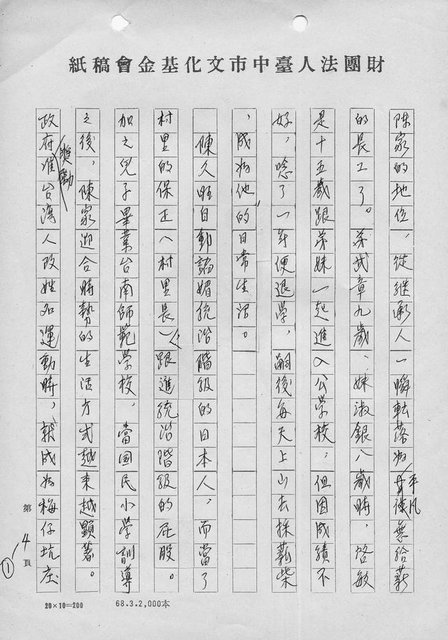 財團法人臺中市文化基金會稿紙
陳家的地位，從繼承人一瞬轉落為平凡無給薪
的長工了。弟武章九歲、妹淑銀八歲時，啓敏
是十五歲跟弟妹一起進入公學校，但因成績不
好，唸了一年便退學，嗣後每天上山去採藤柴
，成為他的日常生活。
陳久旺自動諂媚統治階級的日本人，而當了
村里的保正（村里長），跟進統治階級的屁股。
加之兒子畢業台南師範學校，當國民小學訓導
之後，陳家迎合時勢的生活方式越來越顯著。
政府獎勵台灣人改姓名運動時，就成為梅仔坑庄
第4頁
①
20×10=200
68.3.2,000本